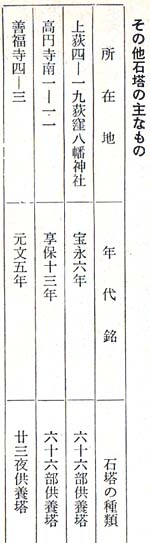 その他石塔の主なもの
所在地 年代銘 石塔の種類
上荻四―一九荻窪八幡神社 宝永六年 六十六部供養塔
高円寺南一―一一 享保十三年 六十六部供養塔
善福寺四―三 元文五年 廿三夜供養塔